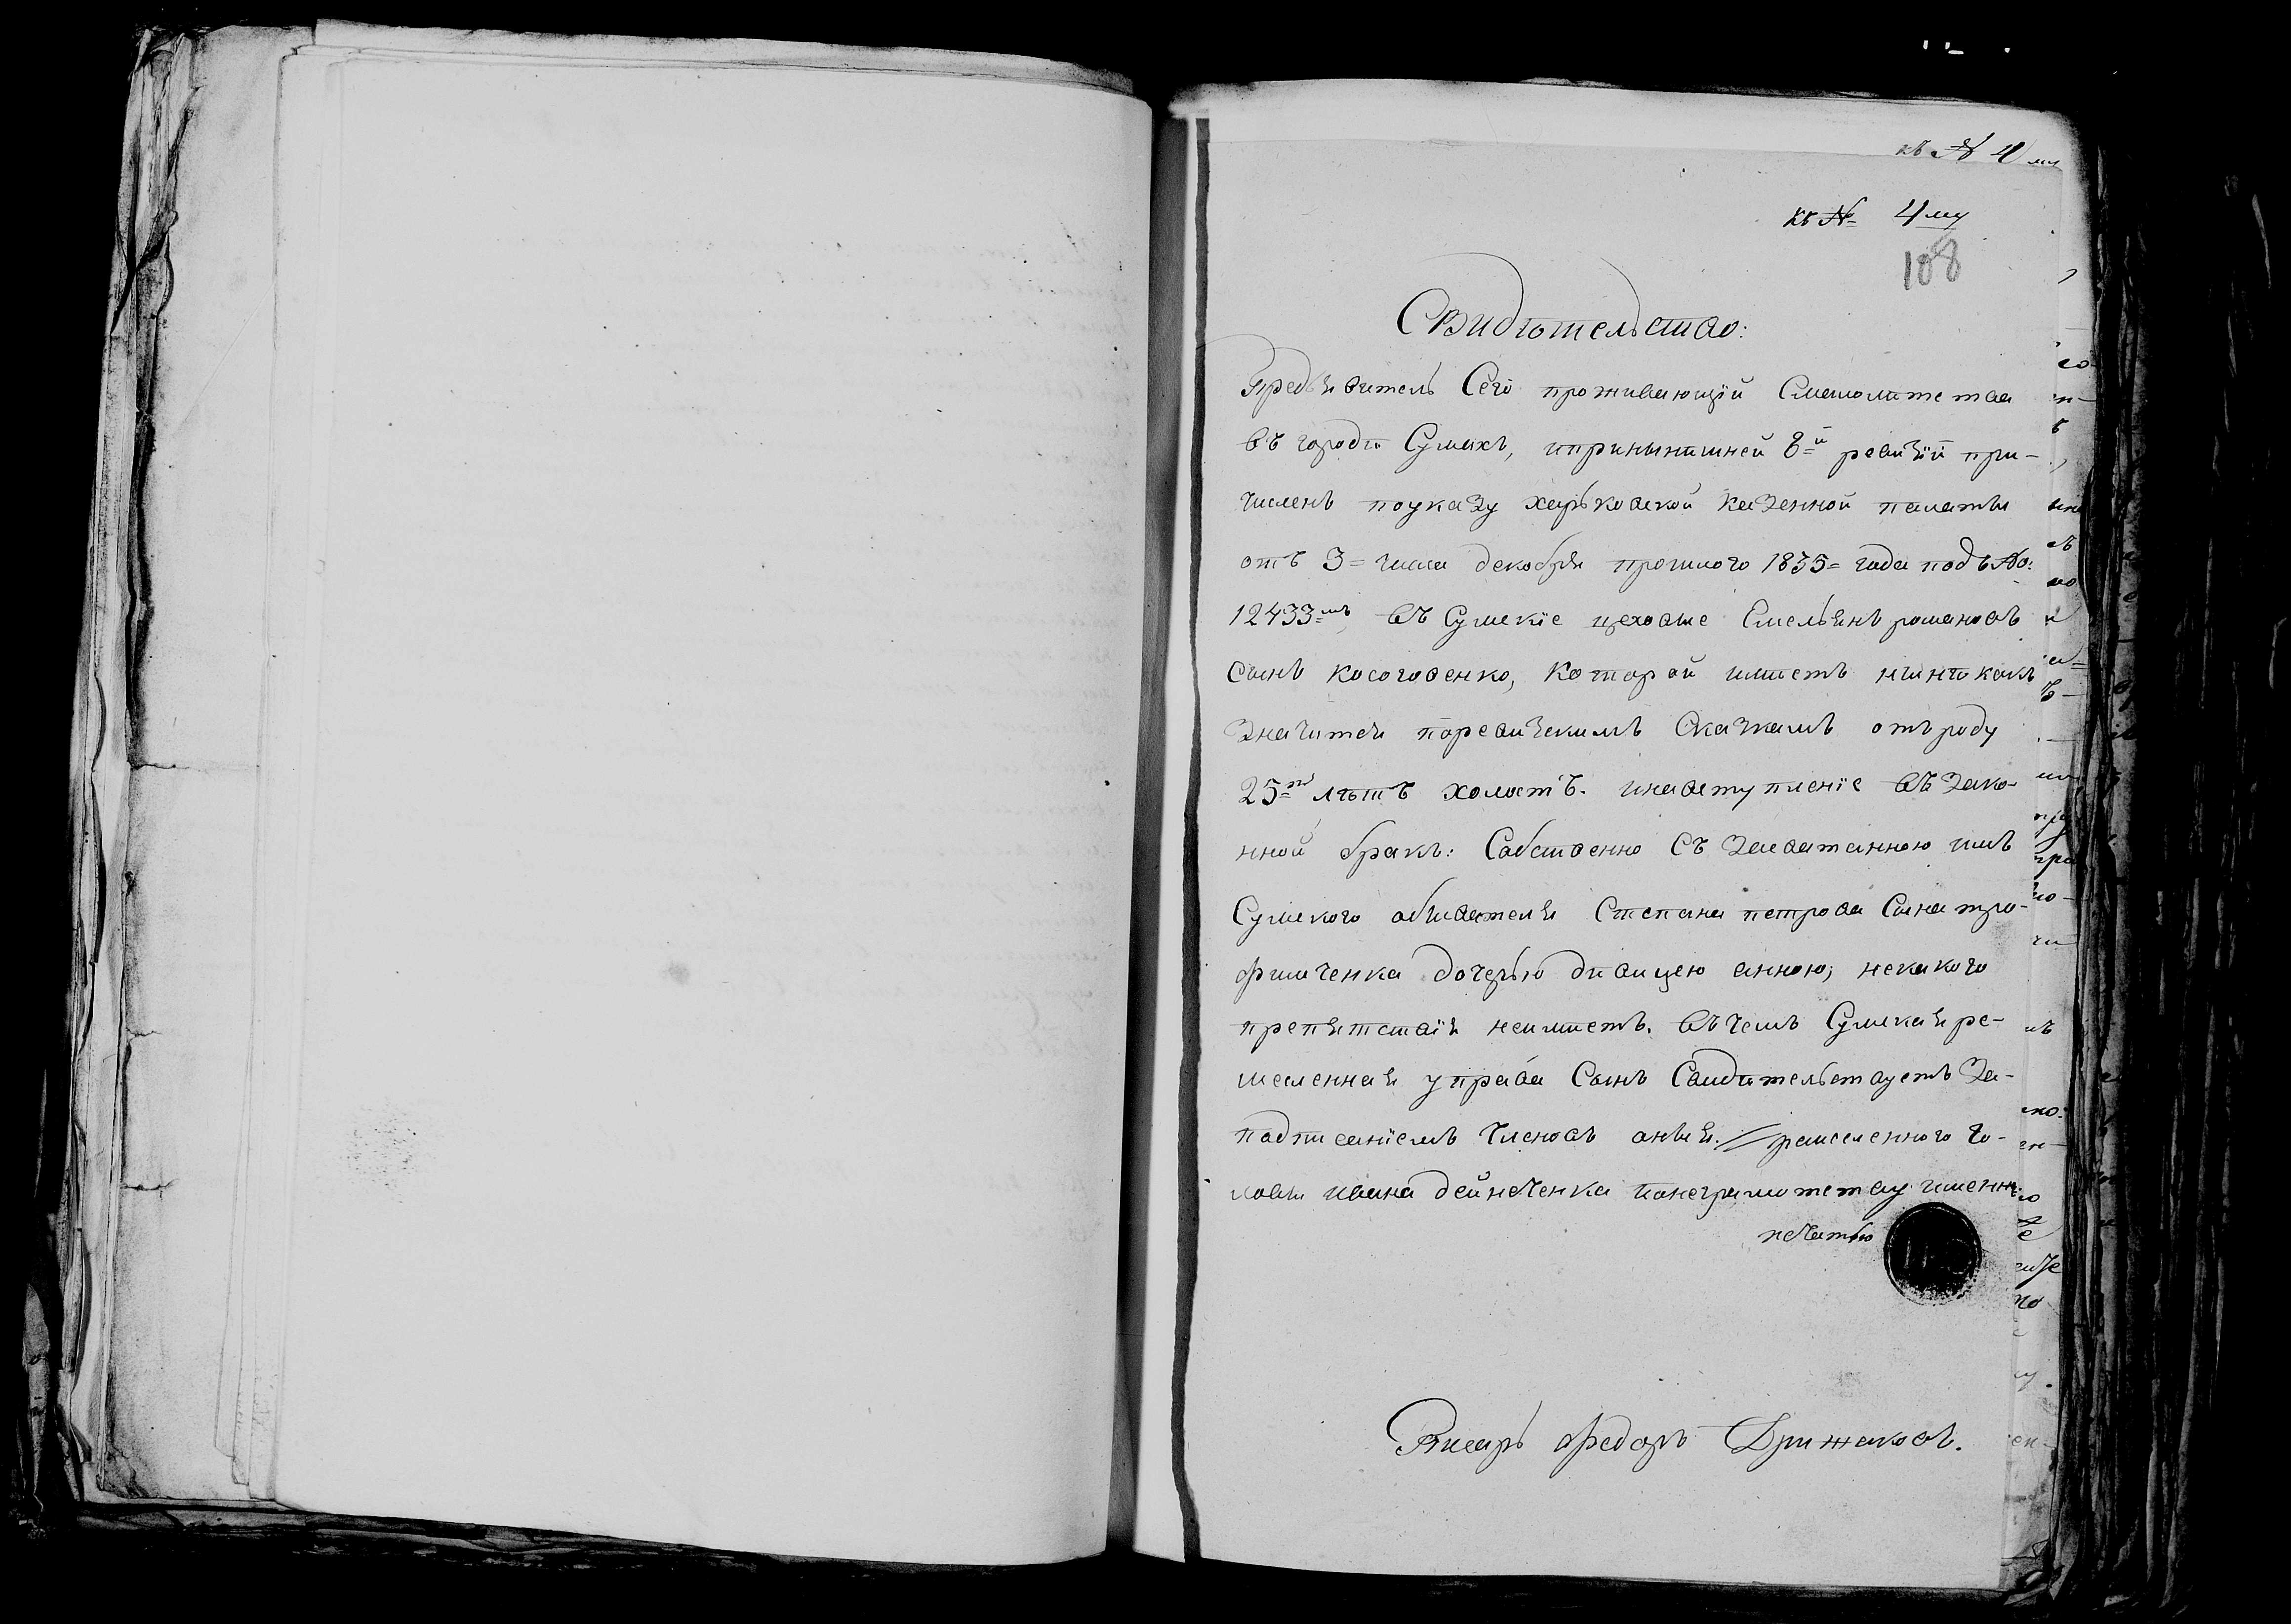 къ № 4 му
къ № 4му
108
Свидѣтельство:
Предъявитель Сего проживающій Смалолитства
въ городѣ Сумахъ, ипринынѣшней 8й ревизіи при-
численъ поуказу харьковской казенной палаты
отъ 3= числа декабря прошлого 1835= года подъ №:
12433=мъ, въ Сумскіе цеховые Емельянъ романовъ
Сынъ косоговенко, Которой имѣетъ нынѣ какъ
значится поревизскимъ Сказкамъ отъ роду
25=ть лѣтъ холостъ. инавступленіе въ зако-
нной бракъ: Собственно Съ засватанною имъ
Сумского обывателя Степана петрова Сына тро-
фимченка дочерью дѣвицею анною; некакого
препятствія неимѣетъ. въ чемъ Сумская ре-
месленная управа Симъ Свидѣтельствуетъ За-
подписаніемъ членовъ оныя. ремесленного го-
ловы ивана дейнеченка понеграмотству именн:
печатью
Писарь федоръ Дрижаковъ.